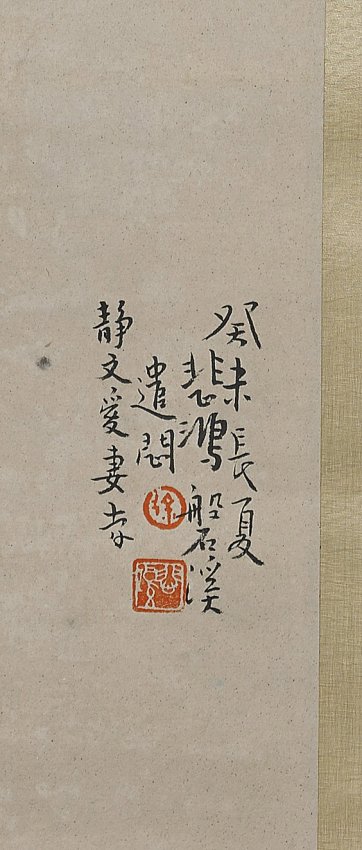 癸未長夏
悲鴻磐溪
遣悶
徐
靜文愛妻存